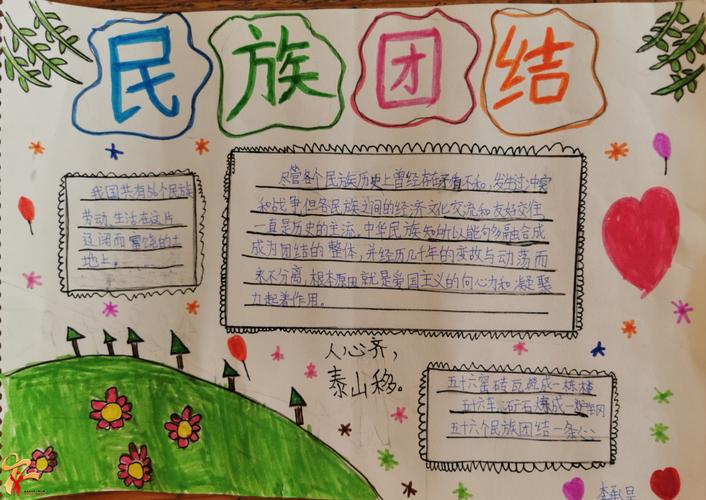 民族团结
我国共有56个民族
劳动生活在这片
辽阔而富饶的土
地上。
尽管各个民族历史上曾经存在矛盾不和，发生过冲突
和战争，但各民族之间的经济文化交流和友好交往
一直是历史的主流，中华民族知所以能够多融合成
成为团结的整体，并经历几十年的变故与动荡而
永不分离，根本原因就是爱国主义的向心力和凝聚
力起着作用。
人心齐，
泰山移。
五十六窑砖瓦绕成一栋楼
五十六车矿石炼成一炉钢
五十六个民族团结一条心